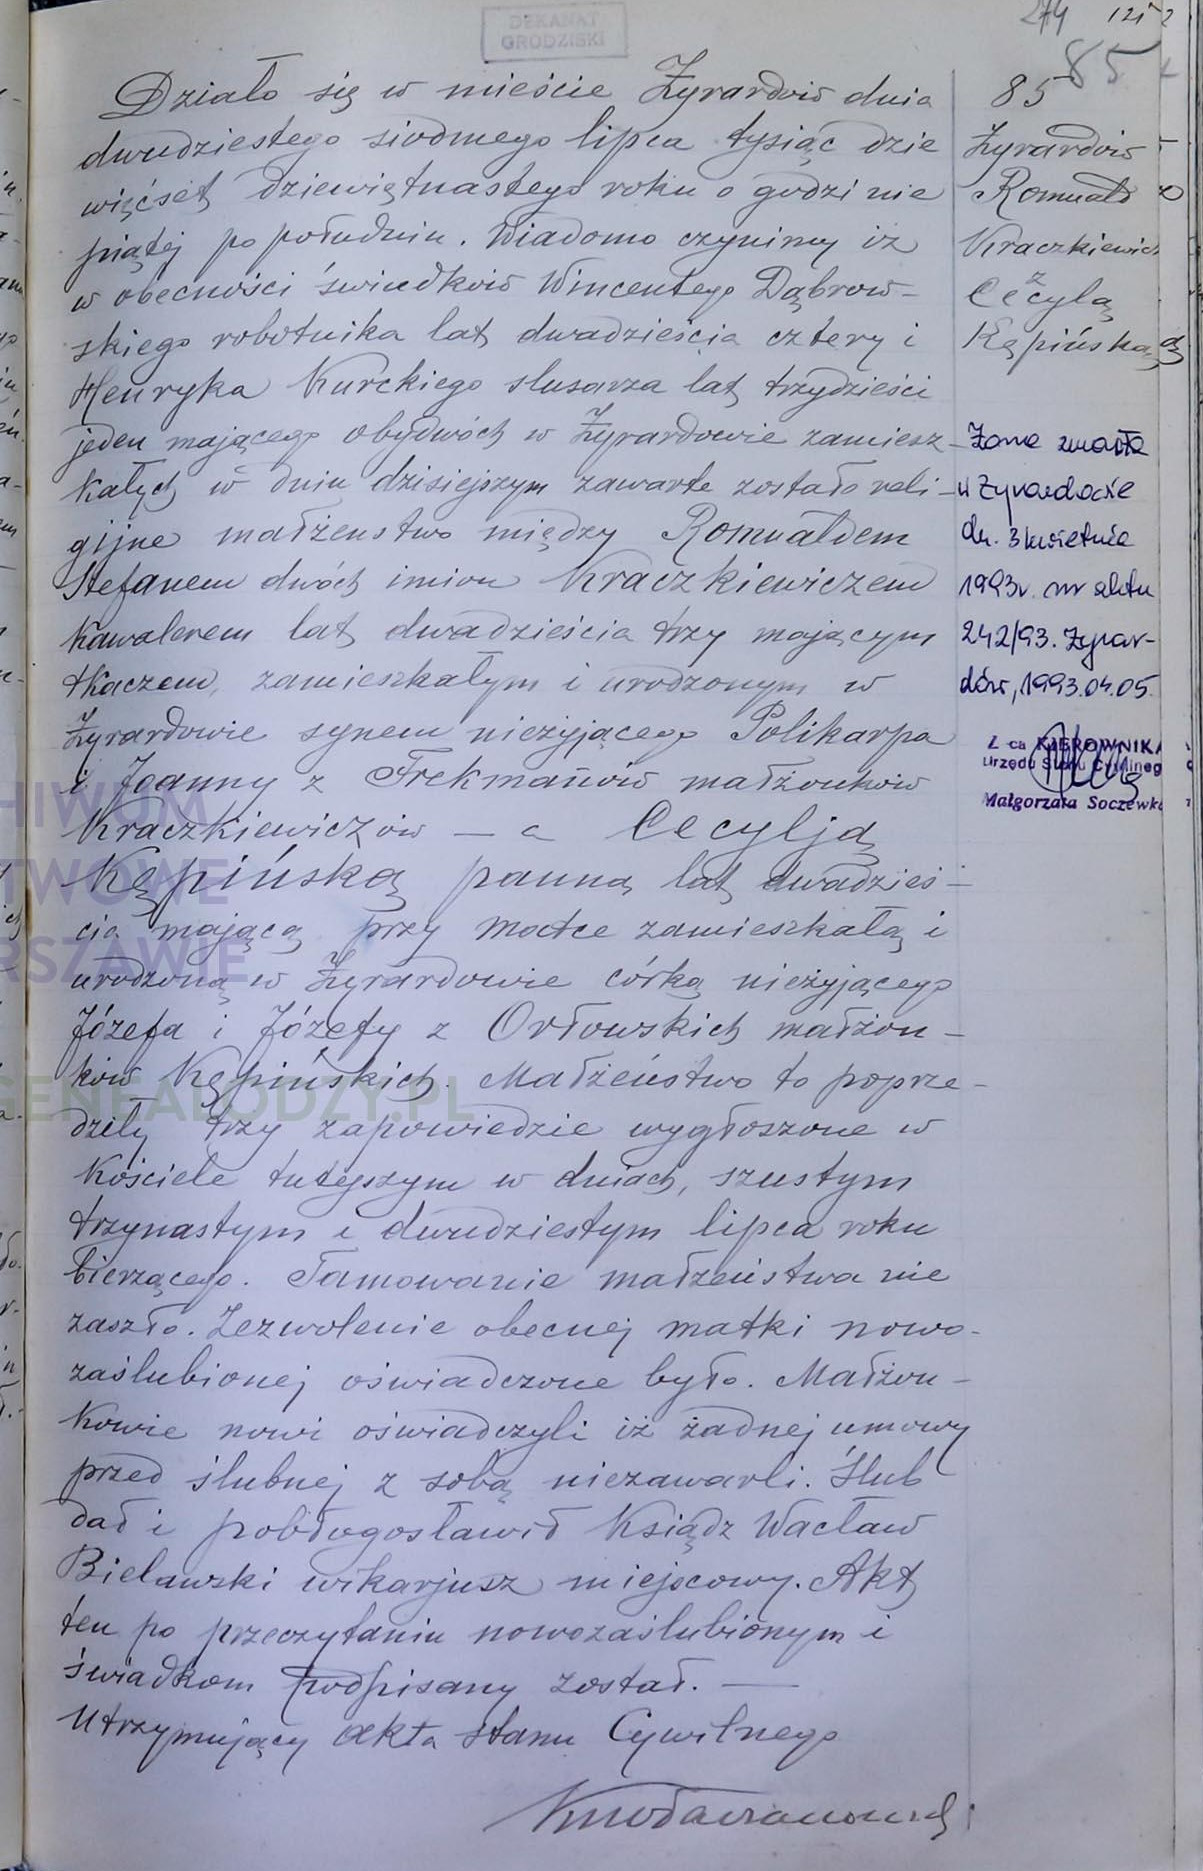 DEKANAT
GRODZISKI
274
85
85
Żyrardów
Romuald
Kraczkiewicz
z
Cecylą
Kępińską
Działo się w mieście Żyrardów dnia
dwudziestego siódmego lipca tysiąc dzie
więćset dziewiętnastego roku o godzinie
piątej po południu. Wiadomo czynimy iż
w obecności świadków Wincentego Dąbrow-
skiego robotnika lat dwadzieścia cztery i
Henryka Kurckiego slusarza lat trzydzieści
jeden mającego obydwóch w Żyrardowie zamiesz-
kałych w dniu dzisiejszym zawarte zostało reli-
gijne małżenstwo między Romualdem
Stefanem dwóch imion Kraczkiewiczem
kawalerem lat dwadzieścia trzy mającym
tkaczem, zamieszkałym i urodzonym w
Żyrardowie synem nieżyjącego Polikarpa
i Joanny z Frekmanów małżonków
Kraczkiewiczów — a Cecylją
Kępińską panną lat dwadzieś-
cia mającą przy matce zamieszkałą i
urodzoną w Żyrardowie córką nieżyjącego
Józefa i Józefy z Orłowskich małżon-
ków Kępińskich. Małżeństwo to poprze-
dziły trzy zapowiedzie wygłoszone w
Kościele tutejszym w dniach, szustym
trzynastym i dwudziestym lipca roku
bierzącego. Tamowanie małżeństwa nie
zaszło. Zezwolenie obecnej matki nowo-
zaślubionej oświadczone było. Małżon-
kowie nowi oświadczyli iż żadnej umowy
przed ślubnej z sobą niezawarli. Ślub
dał i pobłogosławił Ksiądz Wacław
Bielawski wikarjusz miejscowy. Akt
ten po przeczytaniu nowozaślubionym i
świadkom podpisany został. —
Utrzymujący akta stanu Cywilnego
Żona zmarła
w Żyrardowie
dn. 3 kwietnia
1993r. nr aktu
242/93. Żyrar-
dów, 1993.04.05.
Z-ca KIEROWNIKA
Urzędu Stanu Cywilnego
Małgorzata Soczewka
HIWUM
TWOWE
RSZAWIE
GENEALODZY.PL